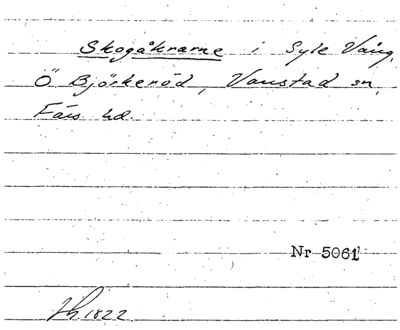 Skogåkrarne i Syle Vång,
Ö Björkeröd, Vanstad sn,
Färs hd.
Nr 5061
1822